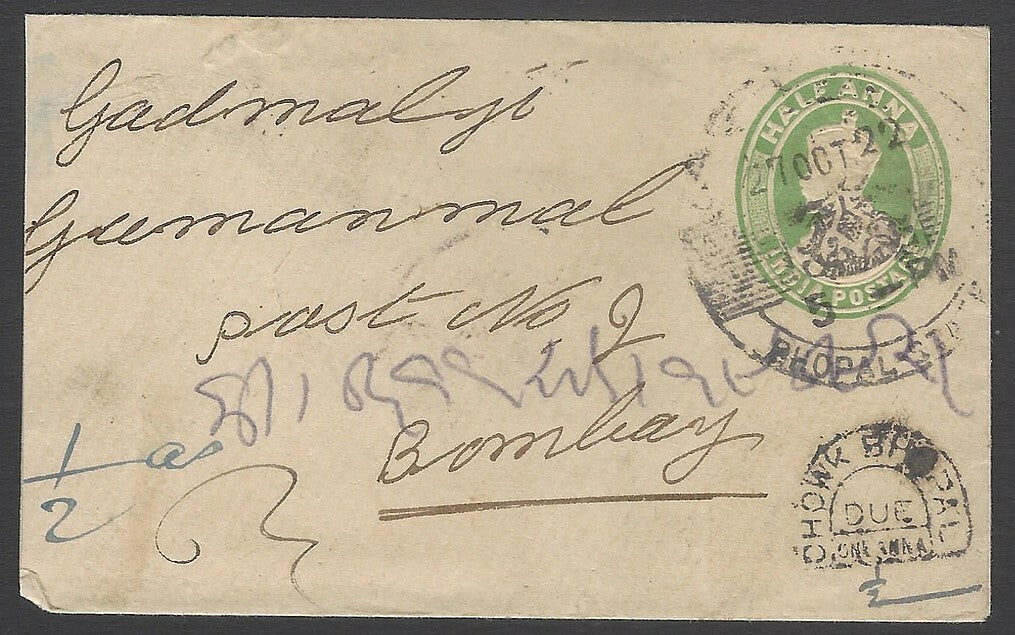 Gadmalji
Gumanmal
post No 2
Bombay
1/2 as
HALF ANNA
INDIA POSTAGE
27 OCT 22
5
BHOPAL
CHOWK BHOPAL
DUE
ONE ANNA